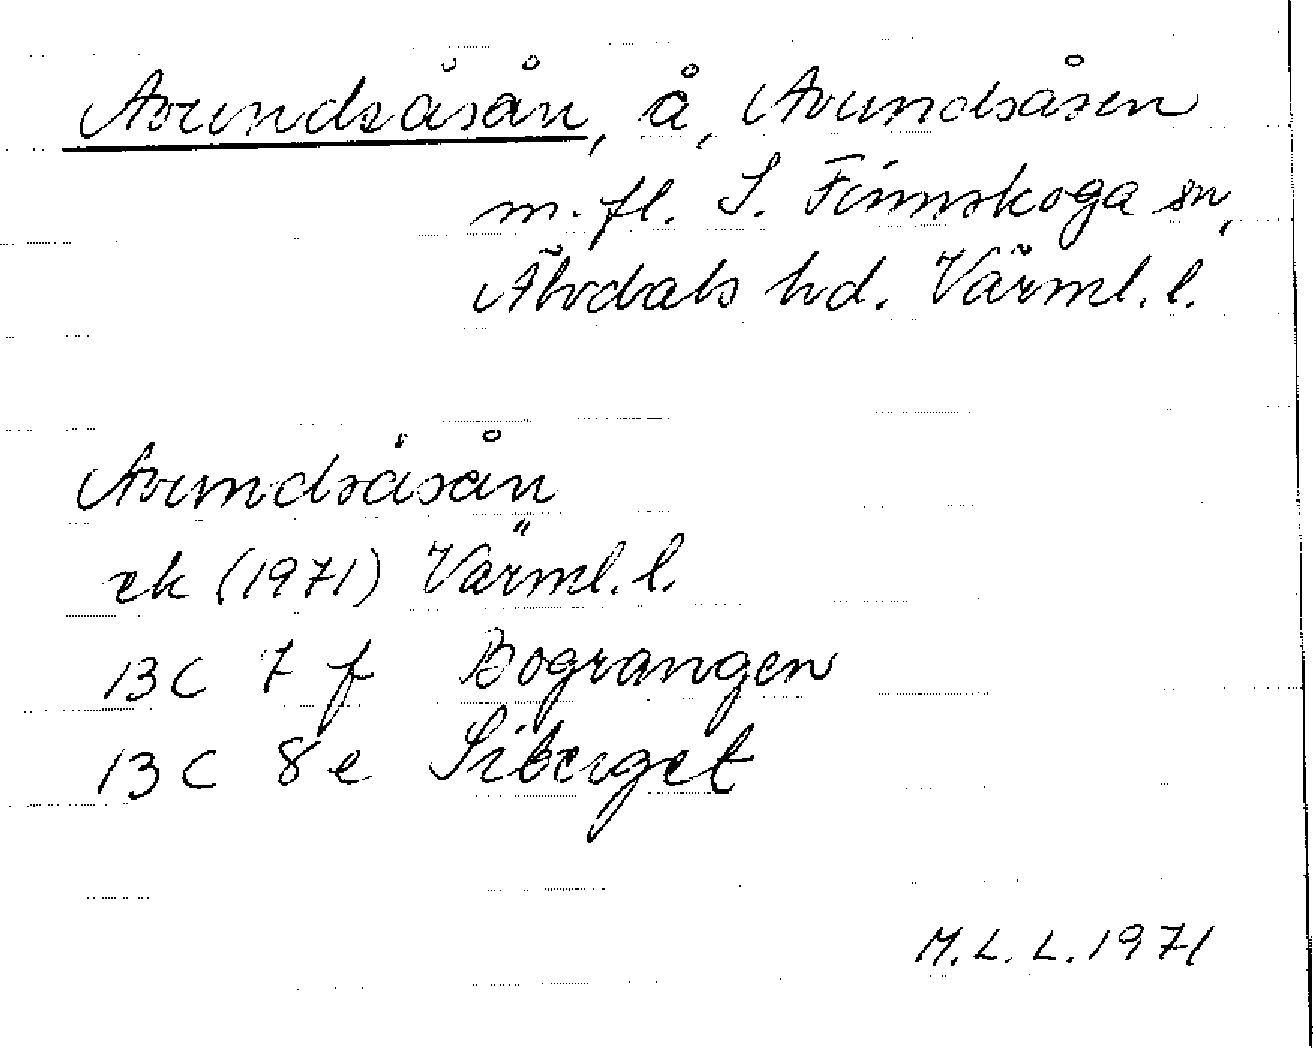 Avundsåsån, å, Avundsåsen
m. fl. S. Finnskoga sn,
Älvdals hd. Värml. l.
Avundsåsån
ek (1971) Värml. l.
13 C 7 f Bograngen
13 C 8 e Riberget
M. L. L. 1971